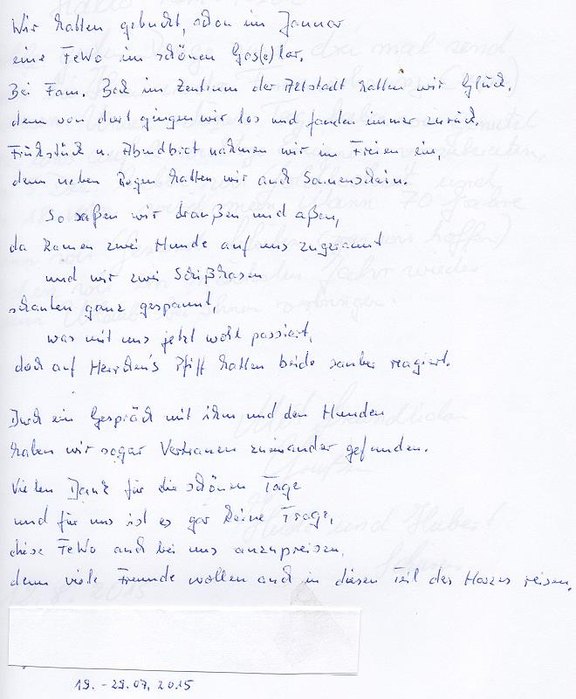 Wir hatten gebucht, schon im Januar
eine FeWo im schönen Gos(e)lar.
Bei Fam. Bock im Zentrum der Altstadt hatten wir Glück,
denn von dort gingen wir los und fanden immer zurück.
Frühstück u. Abendbrot nahmen wir im Freien ein,
denn neben Regen hatten wir auch Sonnenschein.
So saßen wir draußen und aßen,
da kamen zwei Hunde auf uns zugerannt
und wir zwei Schißhasen
schauten ganz gespannt,
was mit uns jetzt wohl passiert,
doch auf Herrchen's Pfiff hatten beide sauber reagiert.
Durch ein Gespräch mit ihm und den Hunden
haben wir sogar Vertrauen zueinander gefunden.
Vielen Dank für die schönen Tage
und für uns ist es gar keine Frage,
diese FeWo auch bei uns anzupreisen,
denn viele Freunde wollen auch in diesen Teil des Harzes reisen.
19. - 29.07.2015